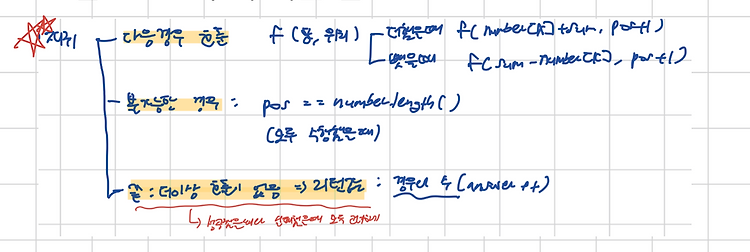 재귀
다음경우 호출 f(합, 위치) 더했을때 f(number[k]+sum, pos+1)
뺏을때 f(sum-number[k], pos+1)
불가능한 경우 : pos == number.length()
(모두 수행했을때)
끝 : 더이상 호출이 없음 => 리턴값 : 경우의 수 (answer++)